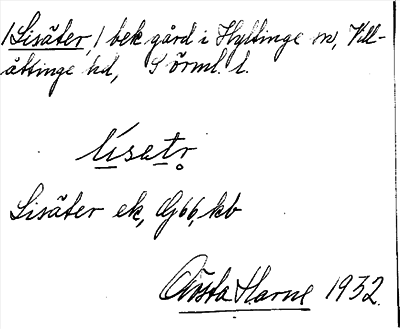 /Lisäter,/ bek gård i Hyltinge sn, Vill-
åttinge hd, Sörml. l.
lisetr
Lisäter ek, G66, kb
Gösta Harne 1932.